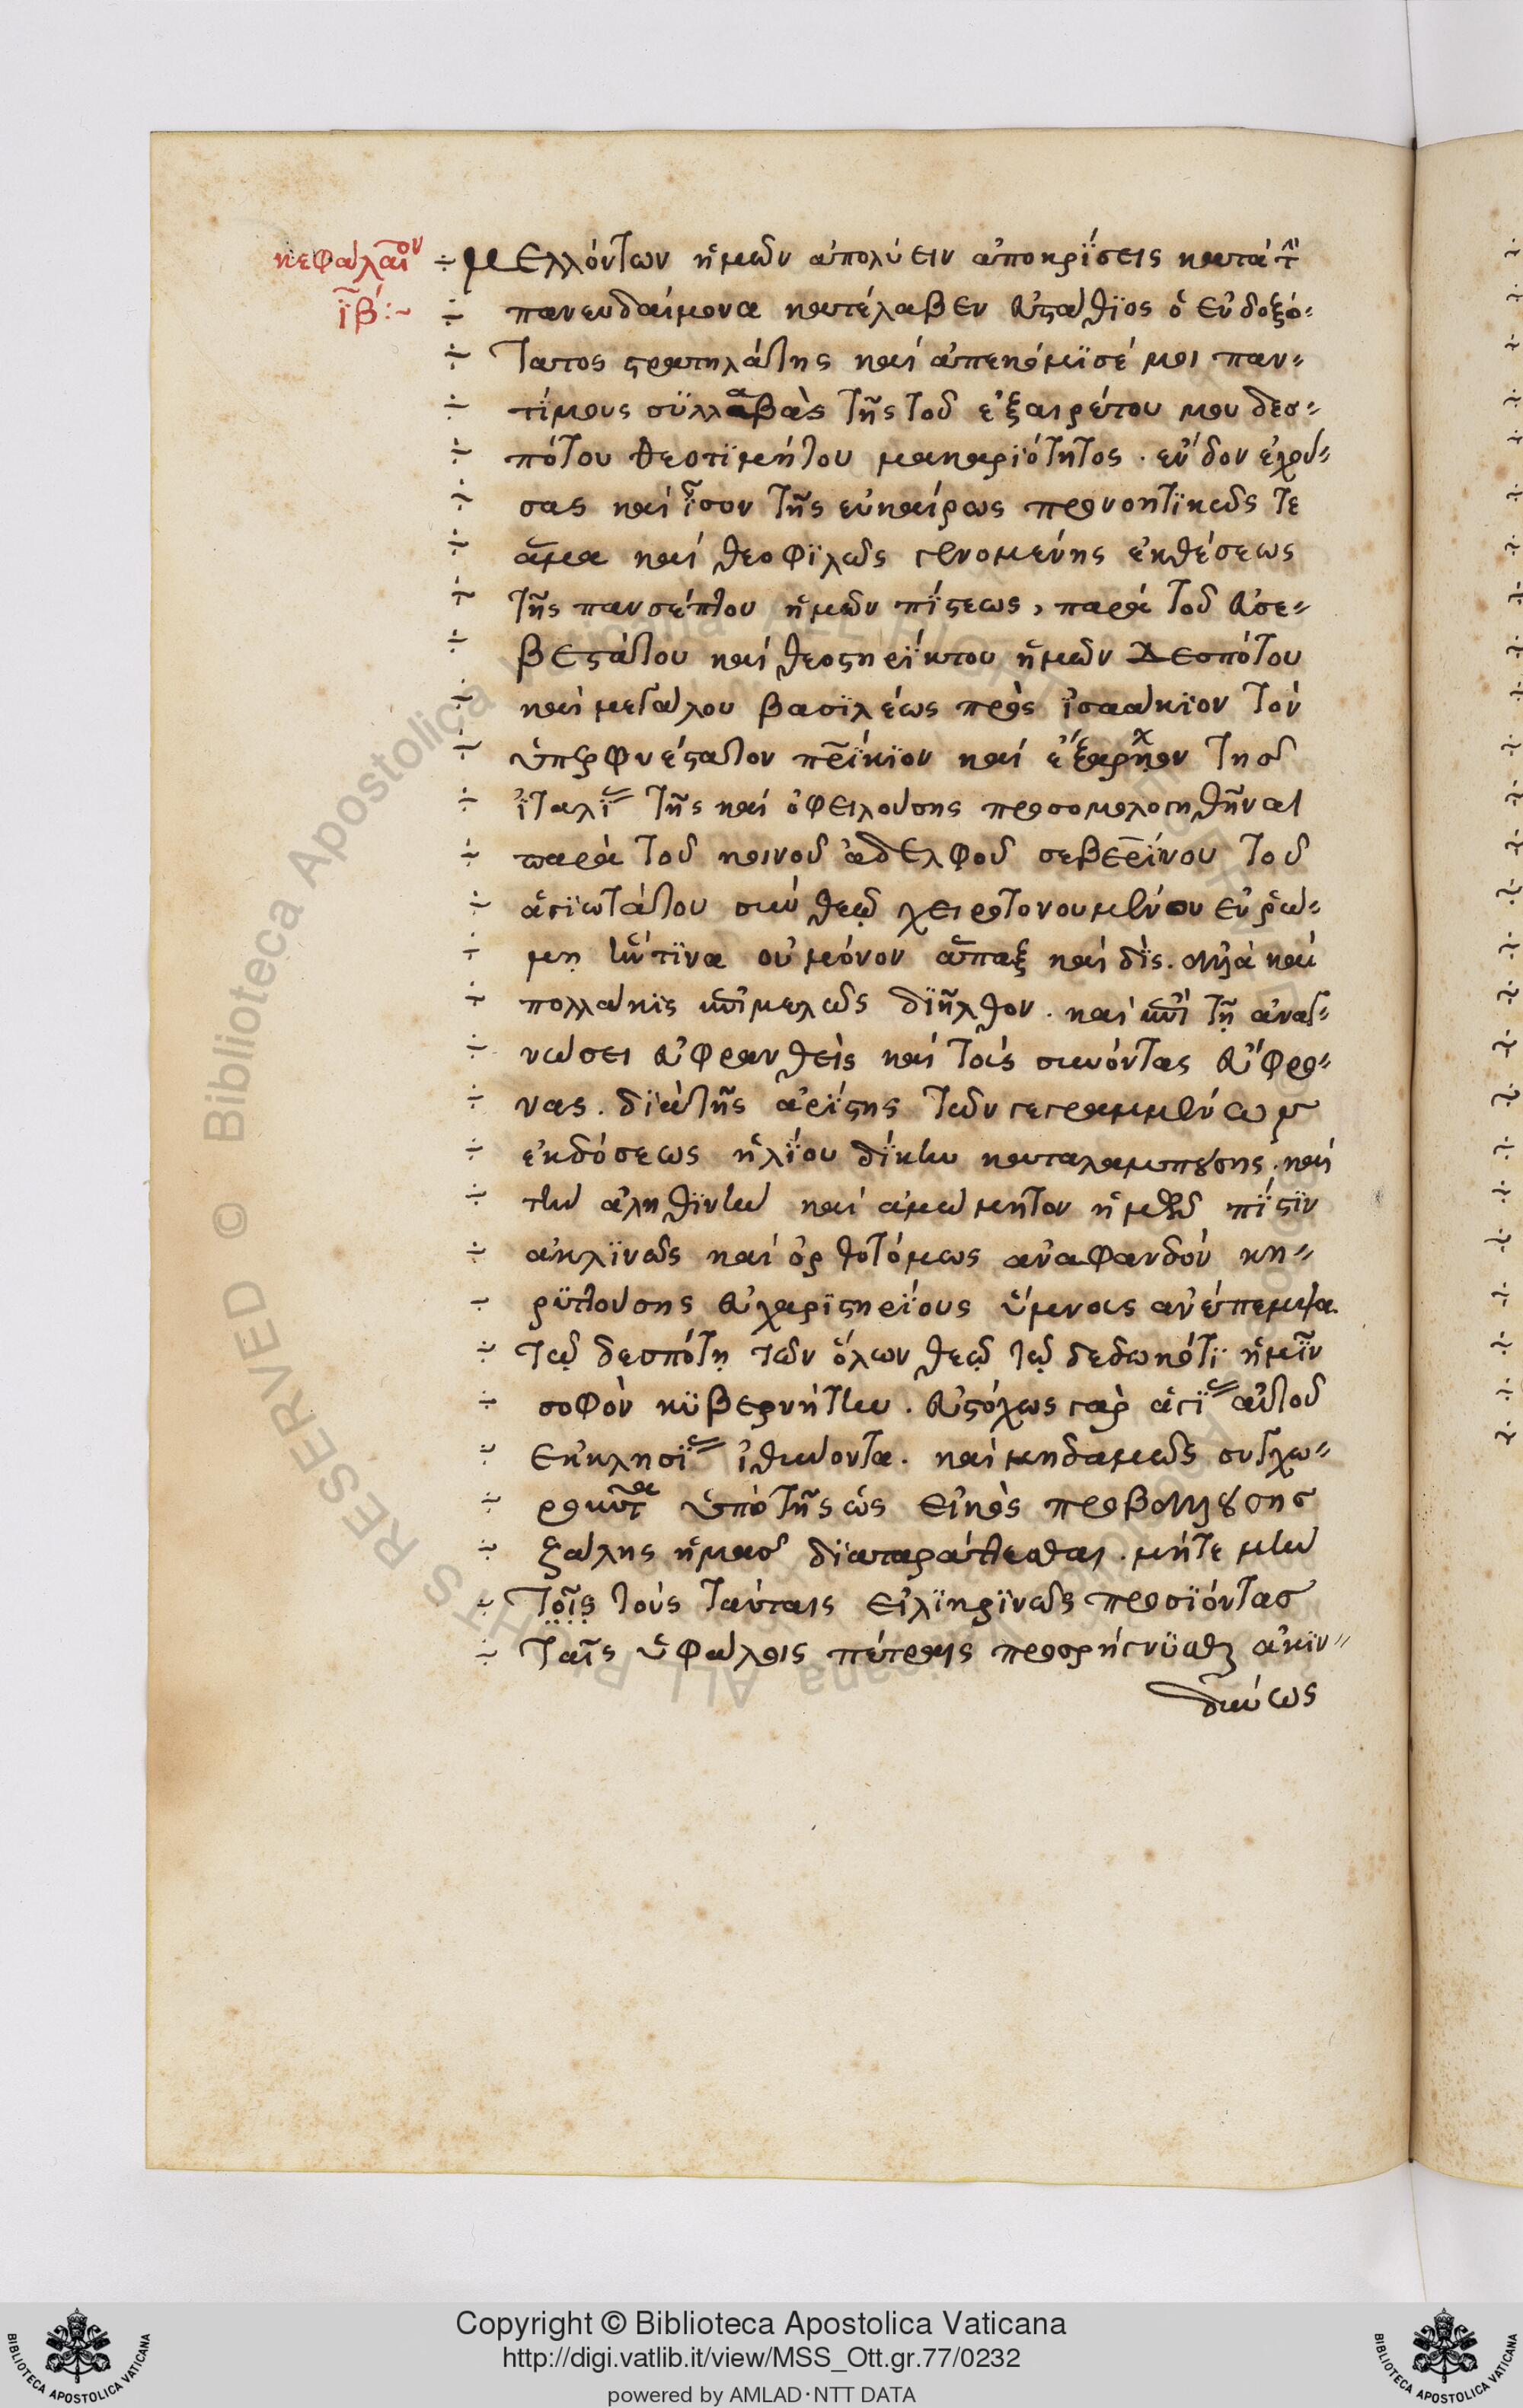 κεφάλαιον
ϊβ:~
μελλόντων ἡμῶν ἀπολύειν ἀποκρίσεις κατὰ τ̑
πανευδαίμονα κατέλαβεν εὐστάθϊος ὁ ἐνδοξό-
τατος στρατηλάτης καὶ ἀπεκόμϊσέ μοι παν-
τίμους σϋλλαβὰς τῆς τοῦ ἐξαιρέτου μου δεσ-
πότου θεοτϊμήτου μακαρϊότητος. ἔνδον ἐχού-
σας καὶ ἶσον τῆς εὐκαίρως προνοητϊκῶς τε
ἅμα καὶ θεοφϊλῶς γενομένης ἐκθέσεως
τῆς πανσέπτου ἡμῶν πίστεως, παρὰ τοῦ εὐσε-
βεστάτου καὶ θεοστηρίκτου ἡμῶν δεσπότου
καὶ μεγάλου βασϊλέως πρὸς ϊσαάκϊον τὸν
ὑπερφυέστατον πρϊκιον καὶ ἔξαρχον τησ
ἰταλϊ τῆς καὶ ὀφειλούσης προσομολογηθῆναι
παρὰ τοῦ κοινοῦ ἀδελφοῦ σεβερίνου τοῦ
ἁγϊωτάτου σὺν θεῶ χειροτονουμένου ἐν ῥώ-
μη ἥντϊνα οὐ μόνον ἅπαξ καὶ δὶς. ἀλλὰ καὶ
πολλάκϊς ἐπϊμελῶς διῆλθον. καὶ ἐπὶ τῆ ἀναγ-
νώσει εὐφρανθεὶς καὶ τοὺς συνόντας εὔφρα-
νας. διὰ τῆς ἀρίστης τῶν γεγραμμένων
ἐκδόσεως ἡλίου δίκην καταλαμπούσης. καὶ
τὴν ἀληθϊνὴν καὶ ἀμώμητον ἡμῶν πίστϊν
ἀκλϊνῶς καὶ ὀρθοτόμως ἀναφανδὸν κη-
ρϋττούσης εὐχαρϊστηρίους ὕμνους ἀνέπεμψα.
τῶ δεσπότη τῶν ὅλων θεῶ τῶ δεδωκότϊ ἡμῖν
σοφὸν κϋβερνήτην. εὐστόχως γὰρ ἁγϊ αὐτοῦ
ἐκκλησϊ ἰθύνοντα. καὶ μηδαμῶς συγχω-
ροῦντα ὑπὸ τῆς ὡς εἰκὸς προβαλλούσης
ζάλης ἡμᾶσ δϊαταράττεσθαι. μήτε μὴν
τοῖς τοὺς ταύταις εἰλϊκρϊνῶς προσϊόντασ
ταῖς ὑφάλοις πέτραις προσρήγνϋσθαι ἀκϊν-
δύνως
Copyright © Biblioteca Apostolica Vaticana
http://digi.vatlib.it/view/MSS_Ott.gr.77/0232
powered by AMLAD·NTT DATA